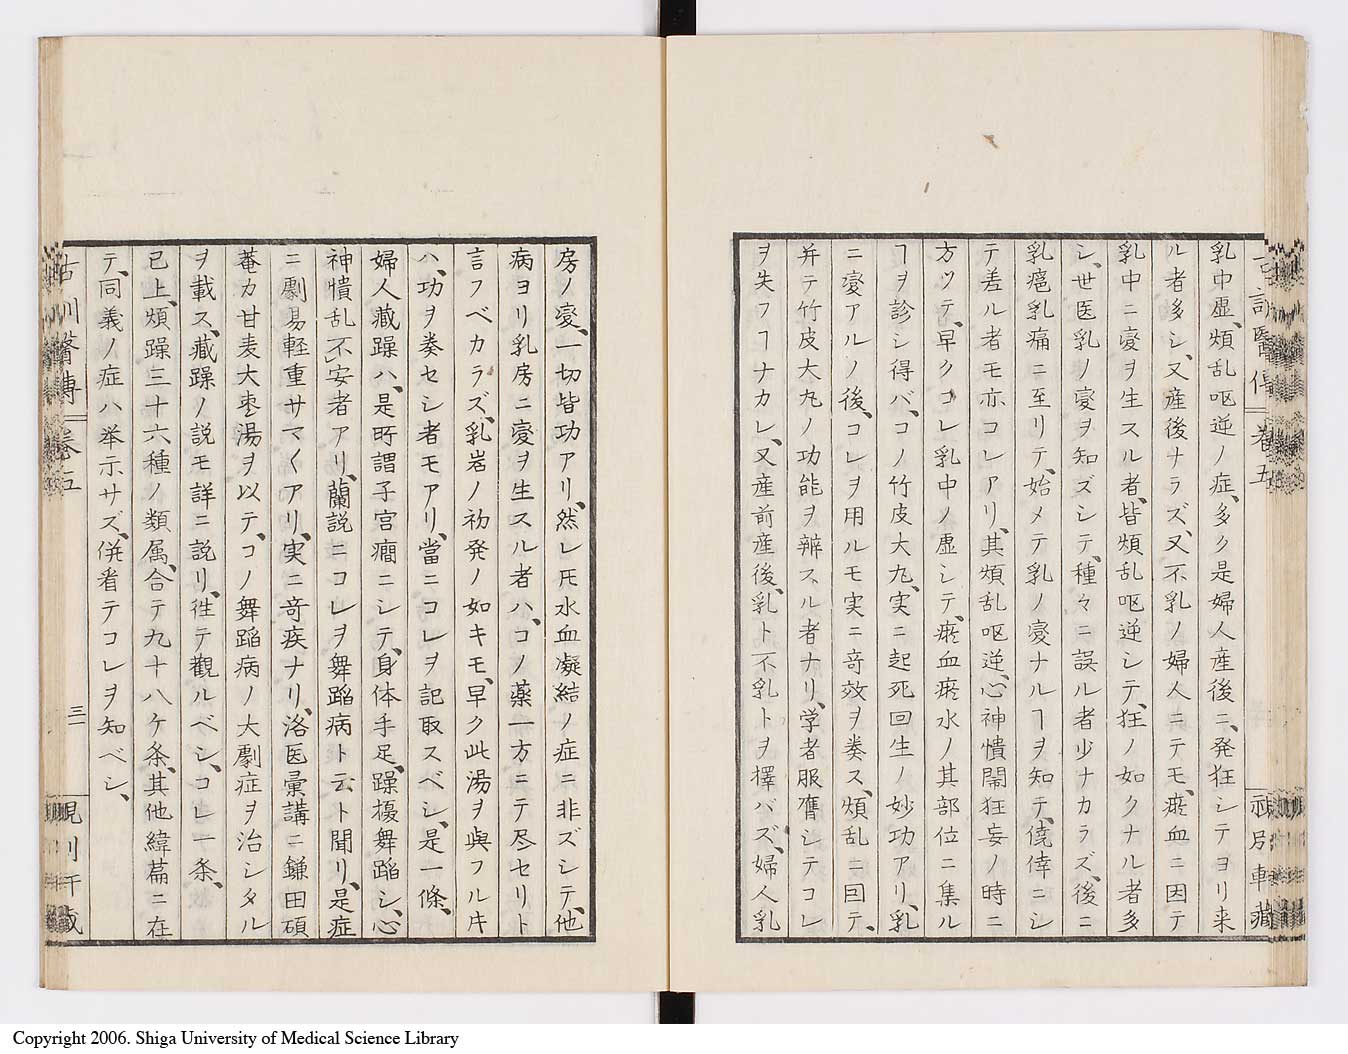 乳中虚、煩乱呕逆ノ症、多ク是婦人産後ニ、発狂シテヨリ来
ル者多シ、又産後ナラズ、又不乳ノ婦人ニテモ、瘀血ニ因テ
乳中ニ変ヲ生スル者、皆煩乱呕逆シテ、狂ノ如クナル者多
シ、世医乳ノ変ヲ知ズシテ、種々ニ誤ル者少ナカラズ、後ニ
乳癰乳痛ニ至リテ、始メテ乳ノ変ナルヿヲ知テ、僥倖ニシ
テ差ル者モ亦コレアリ、其煩乱呕逆、心神憒閙狂妄ノ時ニ
方ツテ、早クコレ乳中ノ虚シテ、瘀血瘀水ノ其部位ニ集ル
ヿヲ診シ得バ、コノ竹皮大丸、実ニ起死回生ノ妙功アリ、乳
ニ変アルノ後、コレヲ用ルモ実ニ竒效ヲ奏ス、煩乱ニ因テ、
并テ竹皮大丸ノ功能ヲ辨スル者ナリ、学者服膺シテコレ
ヲ失フヿナカレ、又産前産後、乳ト不乳トヲ擇バズ、婦人乳
房ノ変、一切皆功アリ、然レ𪜈水血凝結ノ症ニ非ズシテ、他
病ヨリ乳房ニ変ヲ生スル者ハ、コノ薬一方ニテ尽セリト
言フベカラズ、乳岩ノ初発ノ如キモ、早ク此湯ヲ與フルキ
ハ、功ヲ奏セシ者モアリ、當ニコレヲ記取スベシ、是一條、
婦人藏躁ハ、是所謂子宮癇ニシテ、身体手足、躁擾舞蹈シ、心
神憒乱不安者アリ、蘭説ニコレヲ舞蹈病ト云ト聞リ、是症
ニ劇易軽重サマ〱アリ、実ニ竒疾ナリ、洛医彙講ニ鎌田碩
菴カ甘麦大枣湯ヲ以テ、コノ舞蹈病ノ大劇症ヲ治シタル
ヲ載ス、藏躁ノ説モ詳ニ説リ、徃テ觀ルベシ、コレ一条、
已上、煩躁三十六種ノ類属、合テ九十八ケ条、其他緯篇ニ在
テ、同義ノ症ハ挙示サズ、併看テコレヲ知ベシ、
古訓醫傳 巻五
Copyright 2006. Shiga University of Medical Science Library